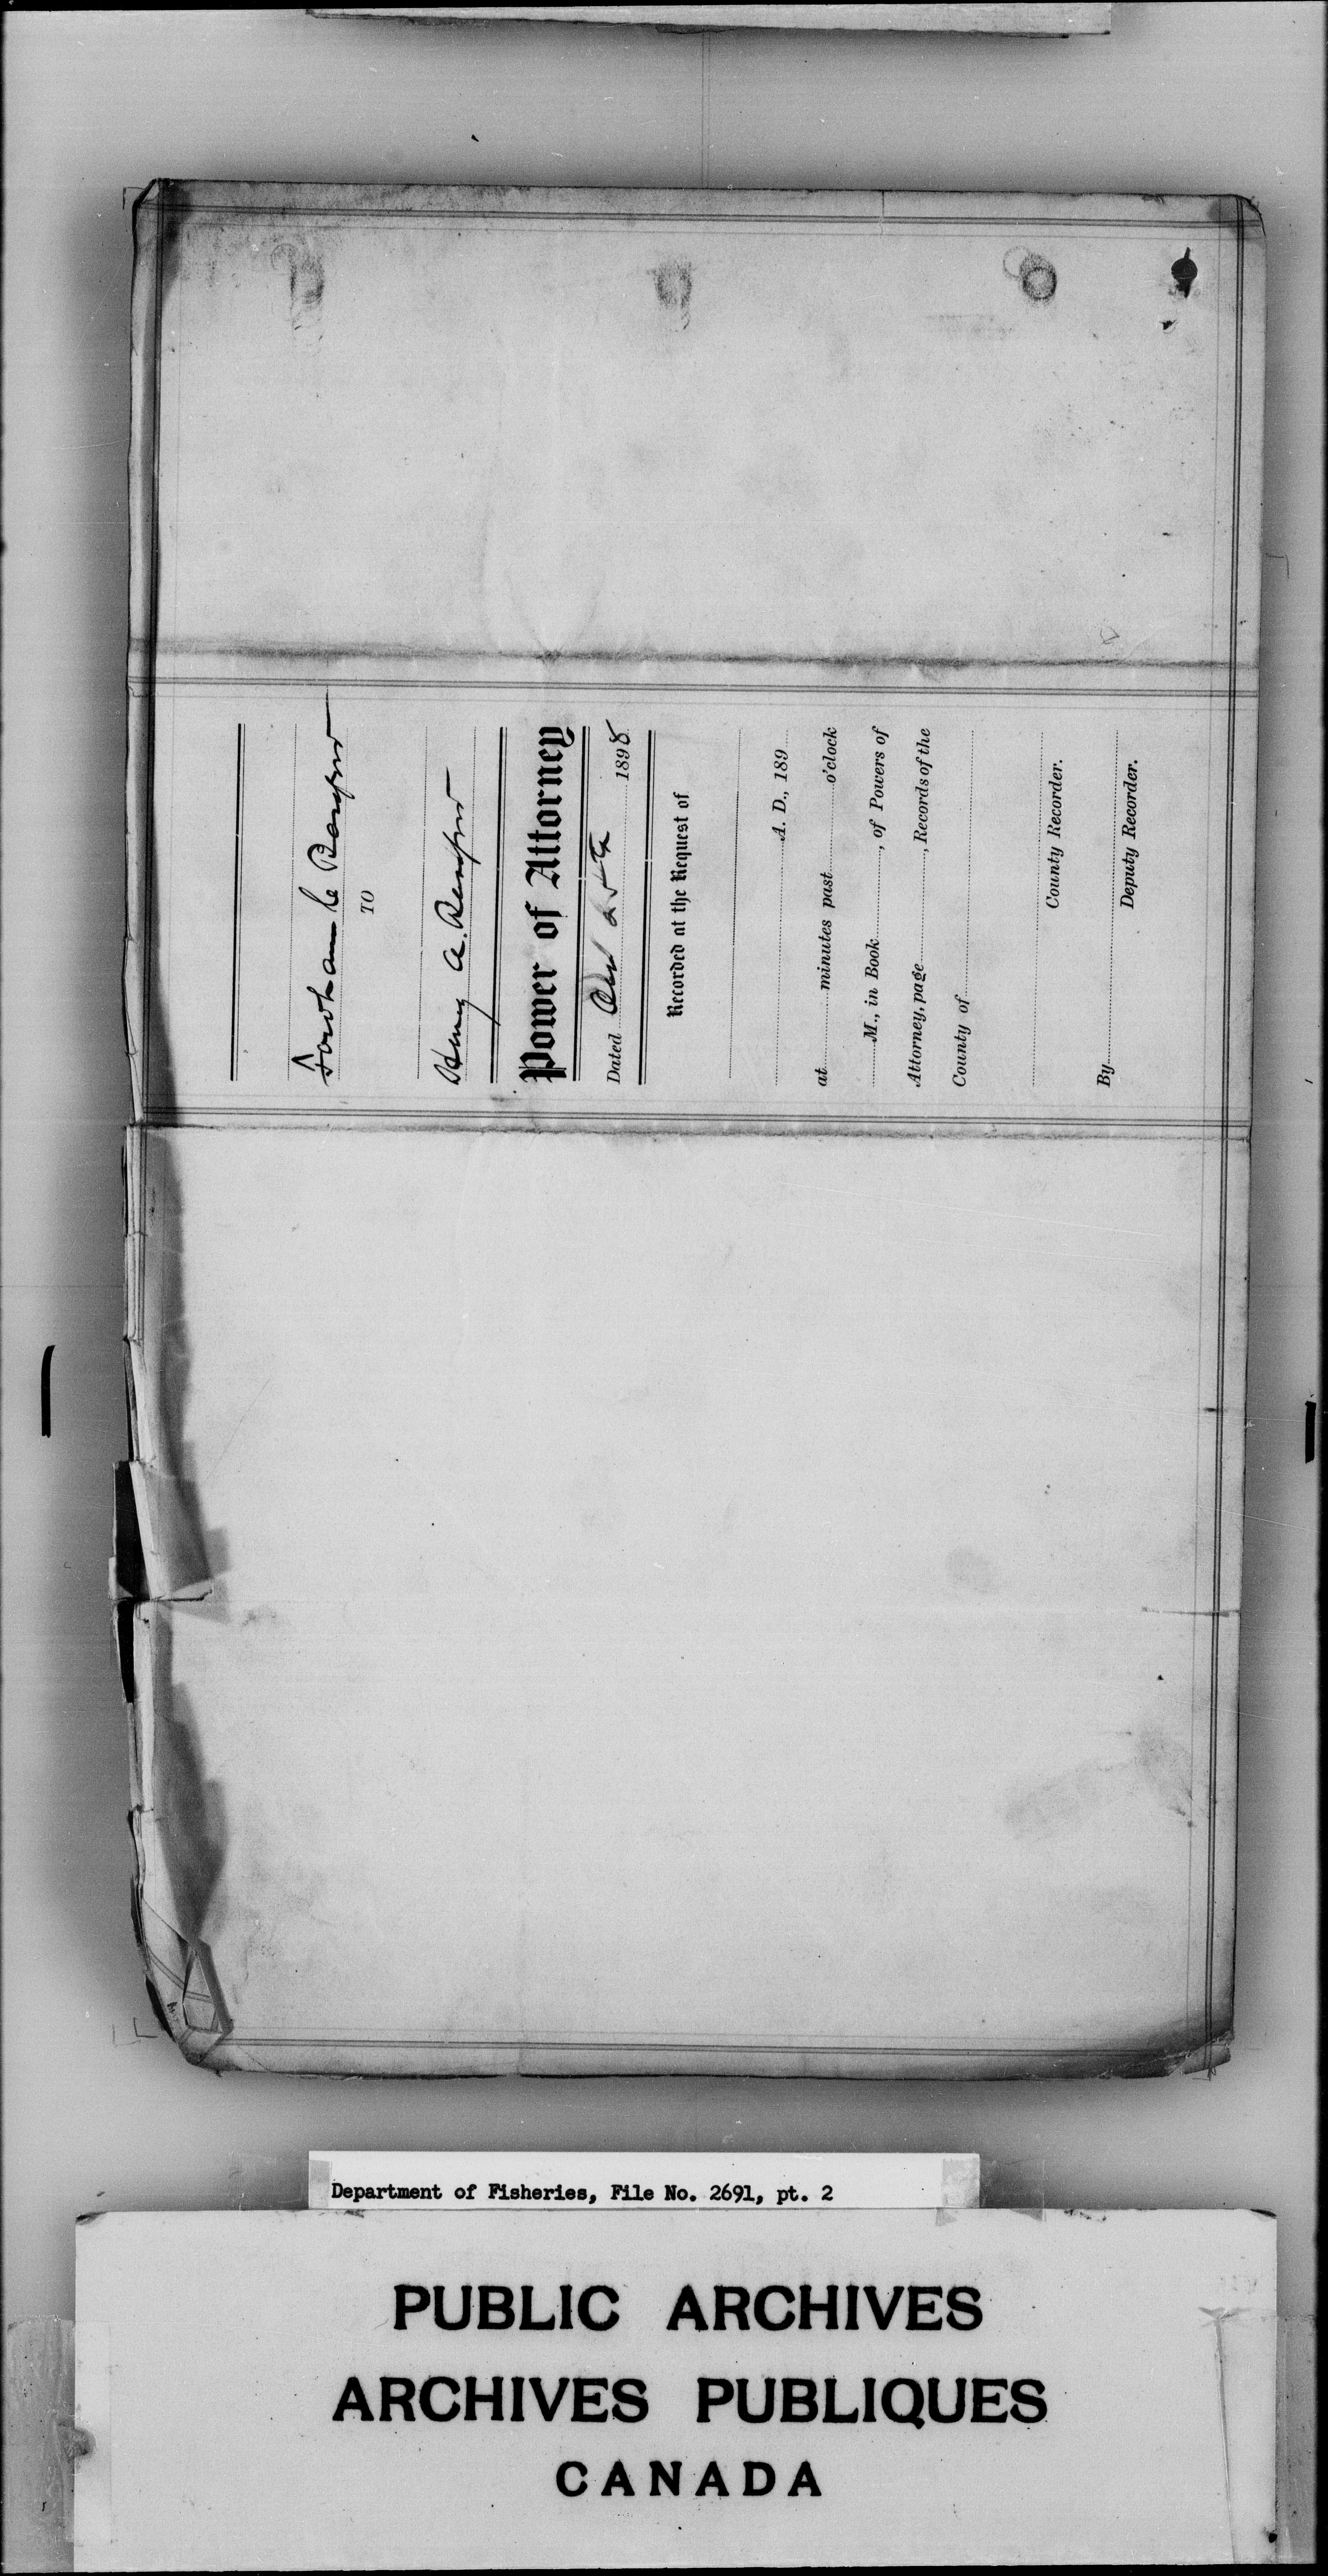 TO
Henry A.
Power of Attorney
Dated Oct 25th 1898
Recorded at the Request of
A. D., 189
at minutes past o'clock
M., in Book , of Powers of
Attorney, page , Records of the
County of
County Recorder.
By
Deputy Recorder.
Department of Fisheries, File No. 2691, pt. 2
PUBLIC ARCHIVES
ARCHIVES PUBLIQUES
CANADA